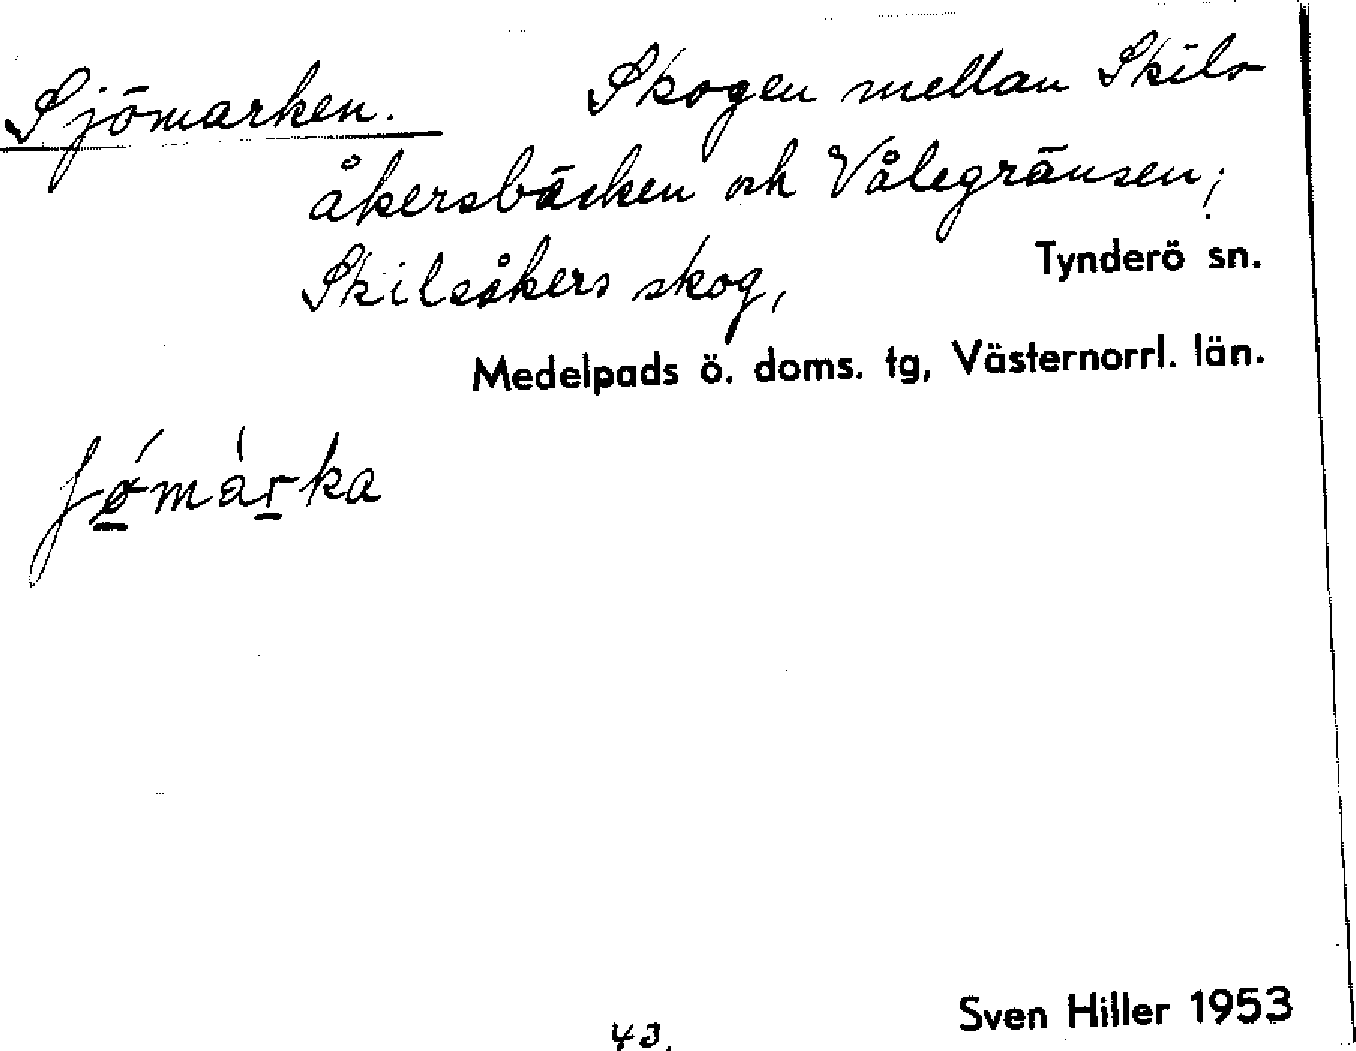 Sjömarken. Skogen mellan Skils-
åkersbäcken och Vålegränsen;
Skilsåkers skog, Tynderö sn.
Medelpads ö. doms. tg, Västernorrl. län.
43. Sven Hiller 1953